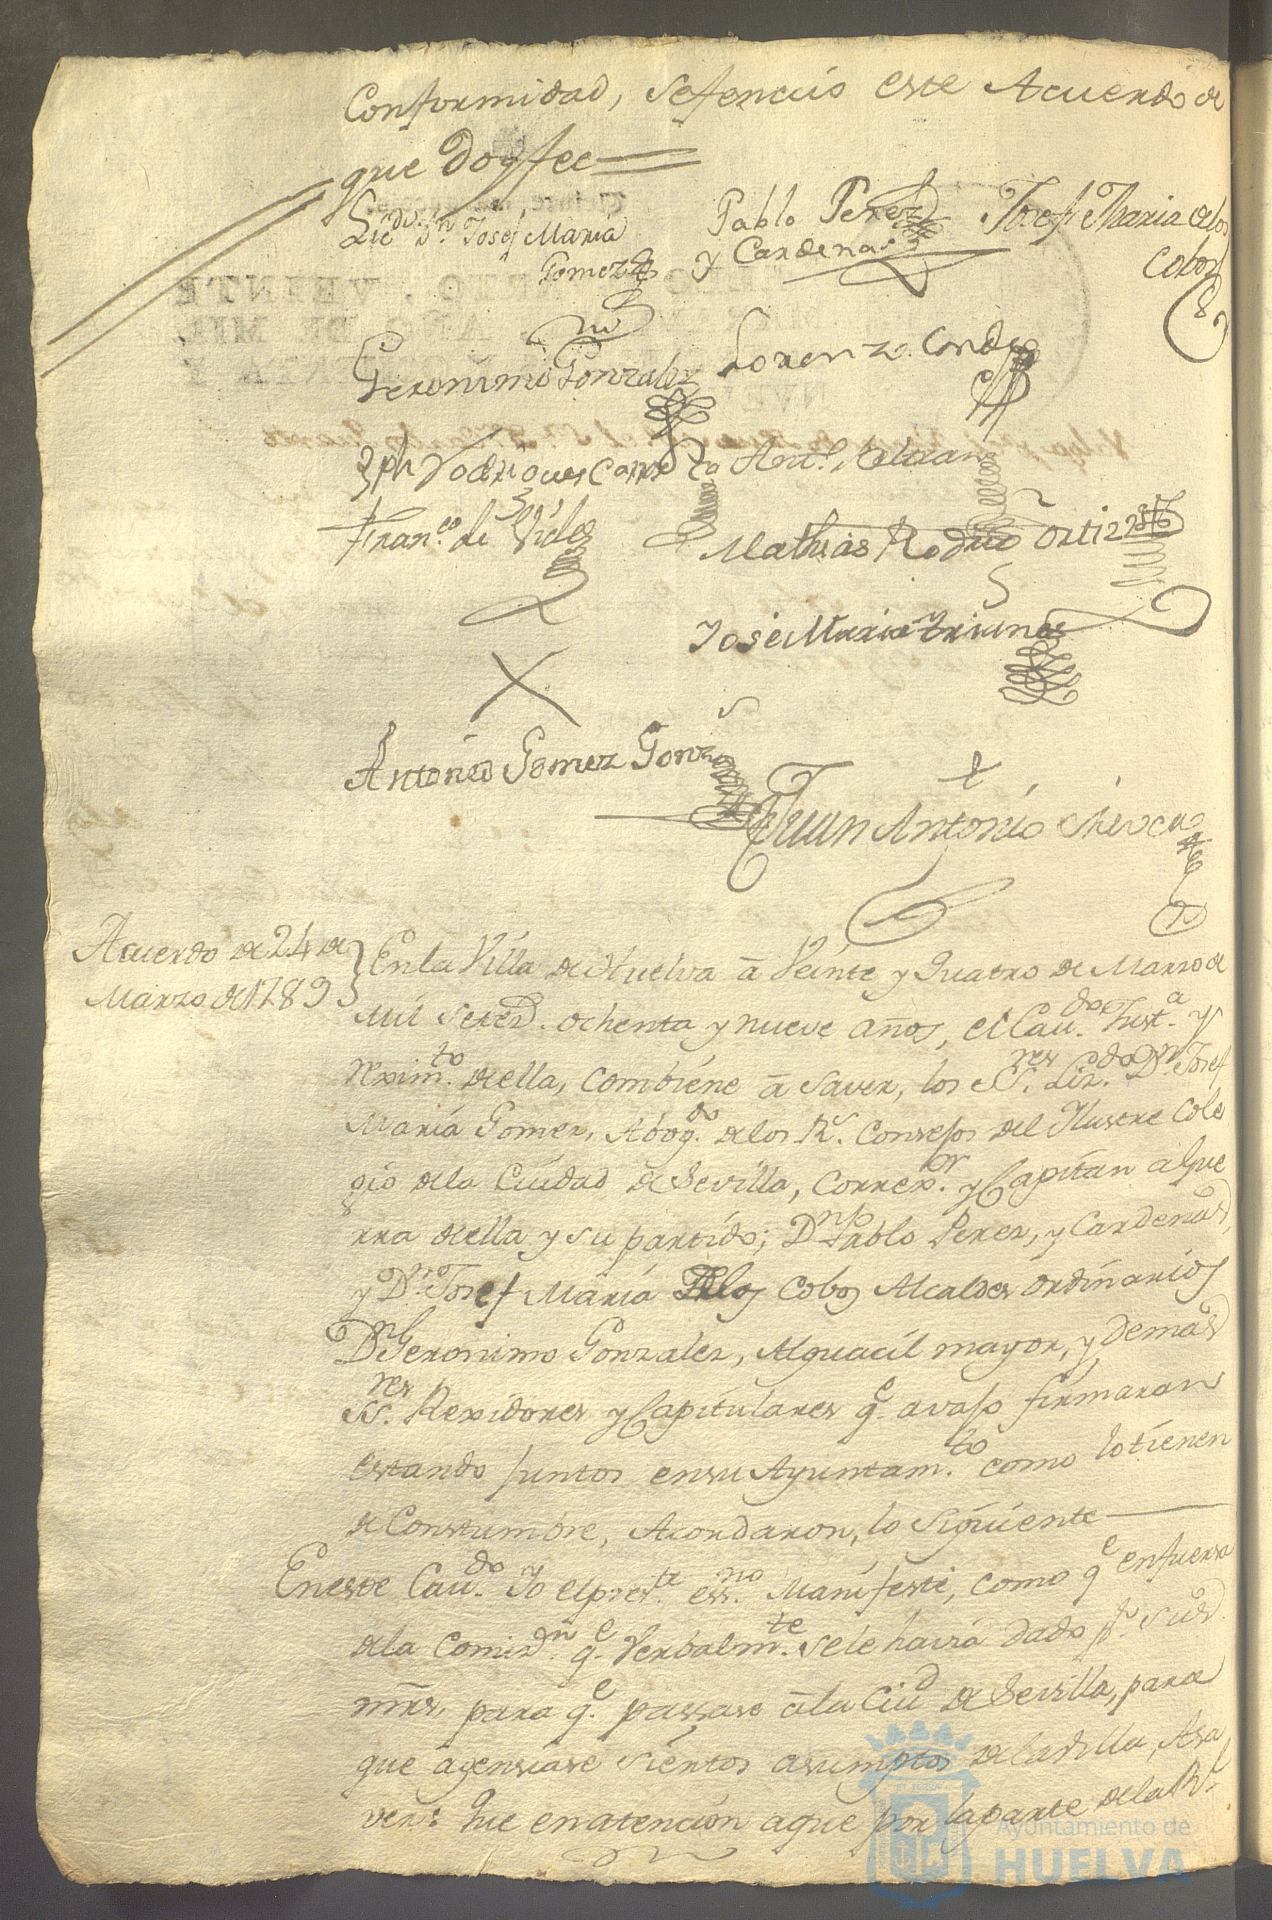 Conformidad, sefenecio este Acuerdo de
que Doyfee
Licdo. Dn. Josef Maria
Gomez
Pablo Perez
y Cardenas
Josef Maria delos
Cobos
Geronimo Gonzalez
Lorenzo Conde
Jph Rodrigues
Antt. Beltran
Franco. de Vides
Mathias Rodrio Ortiz
Jose Maria
Antonio Gomez Gonz
Juan Antonio
Acuerdo de 24 de
Marzo de 1789
Enla Villa de Huelva â Veinte y Quatro de Marzo de
Mil Seted. ochenta y nueve años, el Cavdo. Justa. y
Reximto. de ella, combiene â saver, los SSres. Lizdo. Dn. Josef
María Gomez, Abogdo. delos Rs. Consejos del Ilustre Cole
gio dela Ciudad de Sevilla, Correxor. y Capitan a Gue
rra de ella y su partido; Dn. Pablo Perez, y Cardenas,
y Dn. Josef María Delos Cobos Alcaldes ordinarios
Dn Geronimo Gonzalez, Alguacil mayor, y demas
SSres. Rexidores y Capitulares qe. avajo firmaran
estando juntos ensu Ayuntamto. como lo tienen
de Constumbre, Acordaron, lo Siguiente
Eneste Cavdo. Yo elpreste. essno. Manifesté, como qe enfuerza
dela Comisdn. qe. Verbalmte. sele havia dado pr. sus
mrs. para qe. passase âla Ciud de Sevilla, para
que agensiase sientos asumptos de la Villa, Asa
ver: Que enatencion aque por laparte dela Rl.
Ayuntamiento de
HUELVA